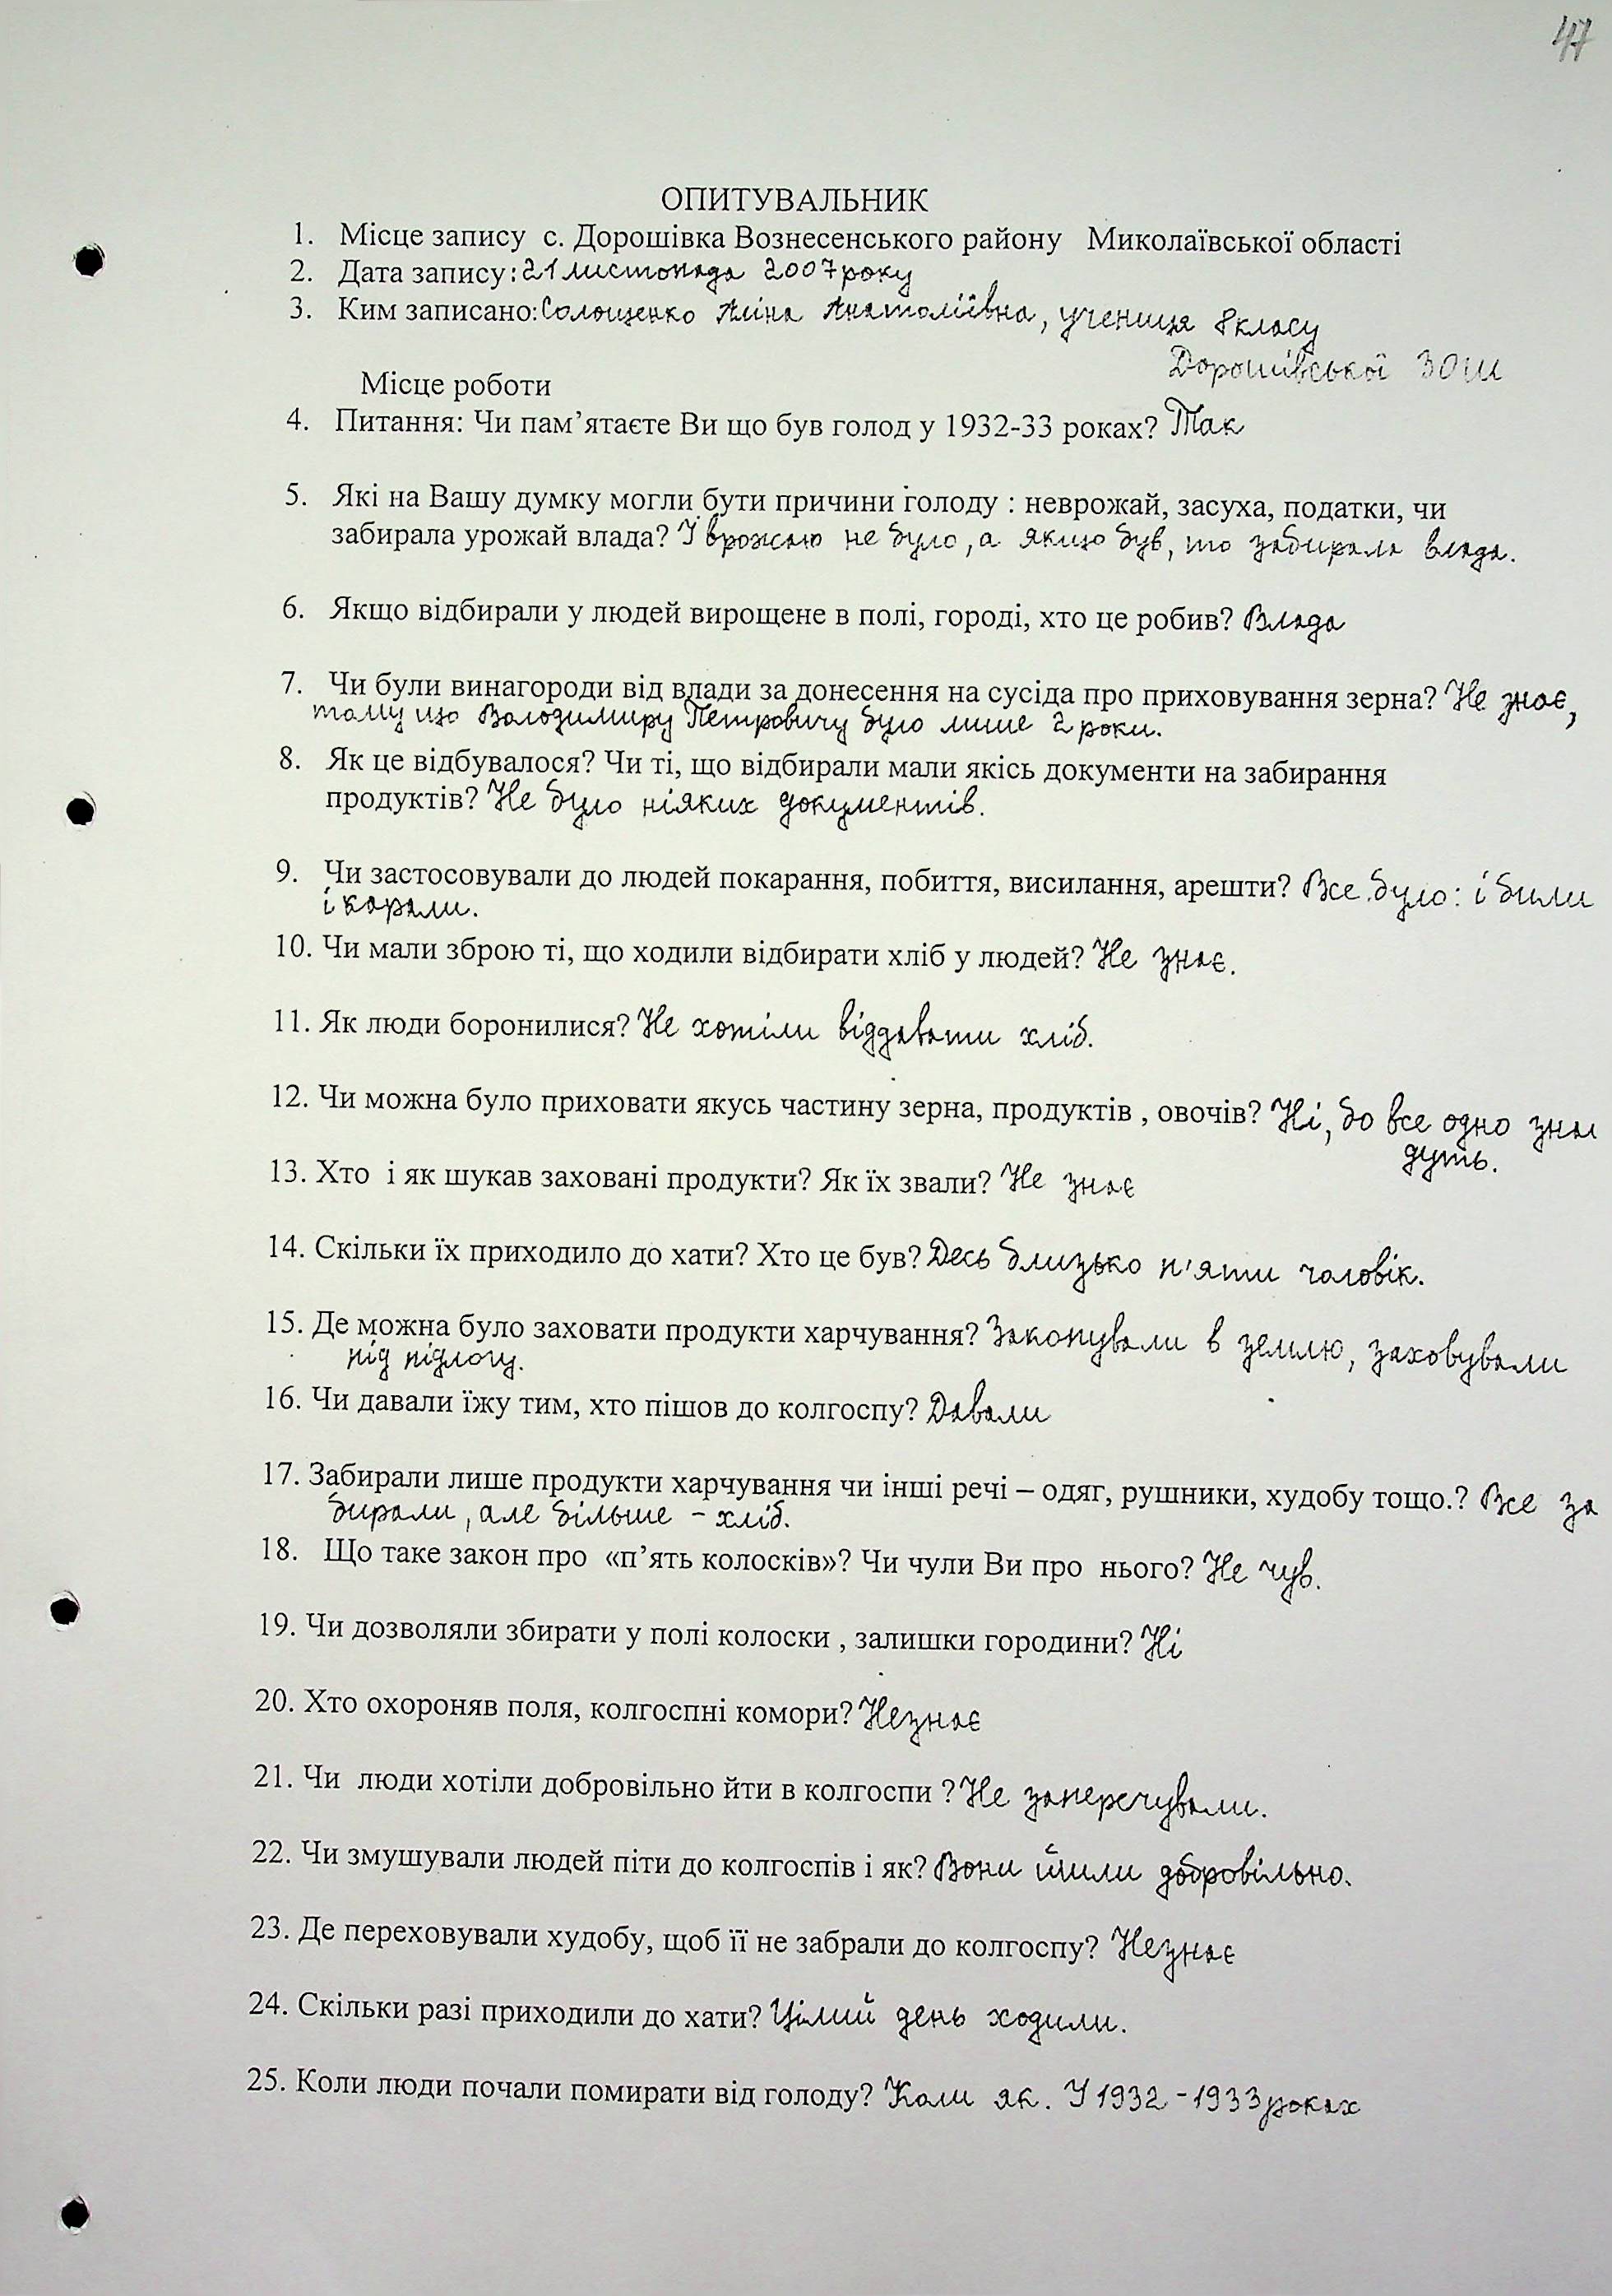 47
ОПИТУВАЛЬНИК
1. Місце запису с. Дорошівка Вознесенського району Миколаївської області
2. Дата запису: 21 листопада 2007 року
3. Ким записано: Солощенко Аліна Анатоліївна, учениця 8 класу
Дорошівської ЗОШ
Місце роботи
4. Питання: Чи пам’ятаєте Ви що був голод у 1932-33 роках? Так
5. Які на Вашу думку могли бути причини голоду : неврожай, засуха, податки, чи
забирала урожай влада? І врожаю не було, а якщо був, то забирала влада.
6. Якщо відбирали у людей вирощене в полі, городі, хто це робив? Влада
7. Чи були винагороди від влади за донесення на сусіда про приховування зерна? Не знає,
тому що Володимиру Петровичу було лише 2 роки.
8. Як це відбувалося? Чи ті, що відбирали мали якісь документи на забирання
продуктів? Не було ніяких документів.
9. Чи застосовували до людей покарання, побиття, висилання, арешти? Все було: і били
і карали.
10. Чи мали зброю ті, що ходили відбирати хліб у людей? Не знає.
11. Як люди боронилися? Не хотіли віддавати хліб.
12. Чи можна було приховати якусь частину зерна, продуктів , овочів? Ні, бо все одно знай
дуть.
13. Хто і як шукав заховані продукти? Як їх звали? Не знає
14. Скільки їх приходило до хати? Хто це був? Десь близько п'яти чоловік.
15. Де можна було заховати продукти харчування? Закопували в землю, заховували
під підлогу.
16. Чи давали їжу тим, хто пішов до колгоспу? Давали
17. Забирали лише продукти харчування чи інші речі – одяг, рушники, худобу тощо.? Все за
бирали, але більше - хліб.
18. Що таке закон про «п’ять колосків»? Чи чули Ви про нього? Не чув.
19. Чи дозволяли збирати у полі колоски , залишки городини? Ні
20. Хто охороняв поля, колгоспні комори? Незнає
21. Чи люди хотіли добровільно йти в колгоспи ? Не заперечували.
22. Чи змушували людей піти до колгоспів і як? Вони йшли добровільно.
23. Де переховували худобу, щоб її не забрали до колгоспу? Незнає
24. Скільки разі приходили до хати? Цілий день ходили.
25. Коли люди почали помирати від голоду? Коли як. У 1932 - 1933 роках